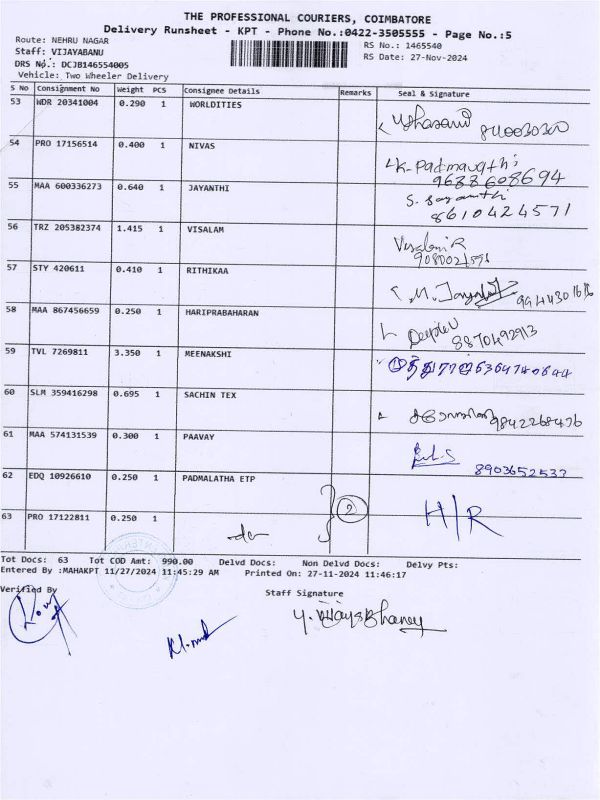 THE PROFESSIONAL COURIERS, COIMBATORE
Delivery Runsheet - KPT - Phone No.:0422-3505555 - Page No.:5
Route: NEHRU NAGAR
RS No.: 1465540
Staff: VIJAYABANU
RS Date: 27-Nov-2024
DRS No.: DCJB146554005
Vehicle: Two Wheeler Delivery
S No Consignment No Weight PCS Consignee Details Remarks Seal & Signature
53 WDR 20341004 0.290 1 WORLDITIES
54 PRO 17156514 0.400 1 NIVAS K. Padmavathi
9688608694
55 MAA 600336273 0.640 1 JAYANTHI S. Jayanthi
8610424571
56 TRZ 205382374 1.415 1 VISALAM Visalam R
57 STY 420611 0.410 1 RITHIKAA
58 MAA 867456659 0.250 1 HARIPRABAHARAN
8870492913
59 TVL 7269811 3.350 1 MEENAKSHI
60 SLM 359416298 0.695 1 SACHIN TEX 9842268476
61 MAA 574131539 0.300 1 PAAVAY
62 EDQ 10926610 0.250 1 PADMALATHA ETP
2 H/R
63 PRO 17122811 0.250 1 -do-
Tot Docs: 63 Tot COD Amt: 990.00 Delvd Docs: Non Delvd Docs: Delvy Pts:
Entered By :MAHAKPT 11/27/2024 11:45:29 AM Printed On: 27-11-2024 11:46:17
Verified By Staff Signature